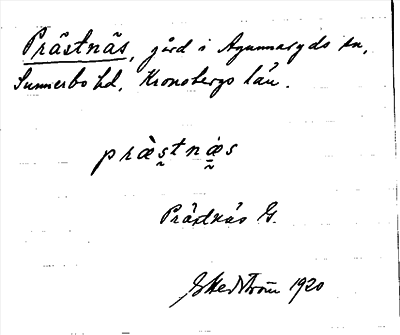 Prästnäs, gård i Agunnaryds sn,
Sunnerbo hd, Kronobergs län.
præ̀stnæ̀s
Prästnäs G.
GHedström 1920